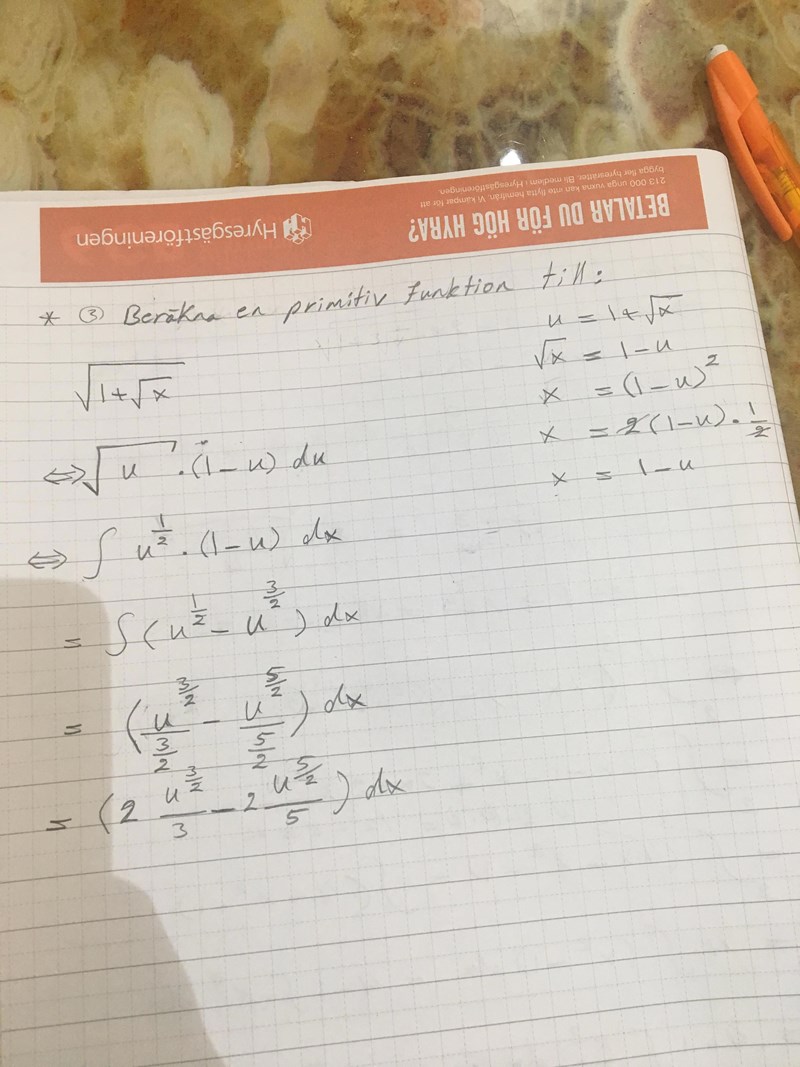 BETALAR DU FÖR HÖG HYRA?
213 000 unga vuxna kan inte flytta hemifrån. Vi kämpar för att
bygga fler hyresrätter. Bli medlem i Hyresgästföreningen.
Hyresgästföreningen
* ③ Beräkna en primitiv funktion till:
√(1+√x)
⇔ √u · (1-u) du
⇔ ∫ u^(1/2) · (1-u) dx
= ∫ (u^(1/2) - u^(3/2)) dx
= (u^(3/2)/(3/2) - u^(5/2)/(5/2)) dx
= (2 u^(3/2)/3 - 2 u^(5/2)/5) dx
u = 1+√x
√x = 1-u
x = (1-u)^2
x = 2(1-u) · 1/2
x = 1-u